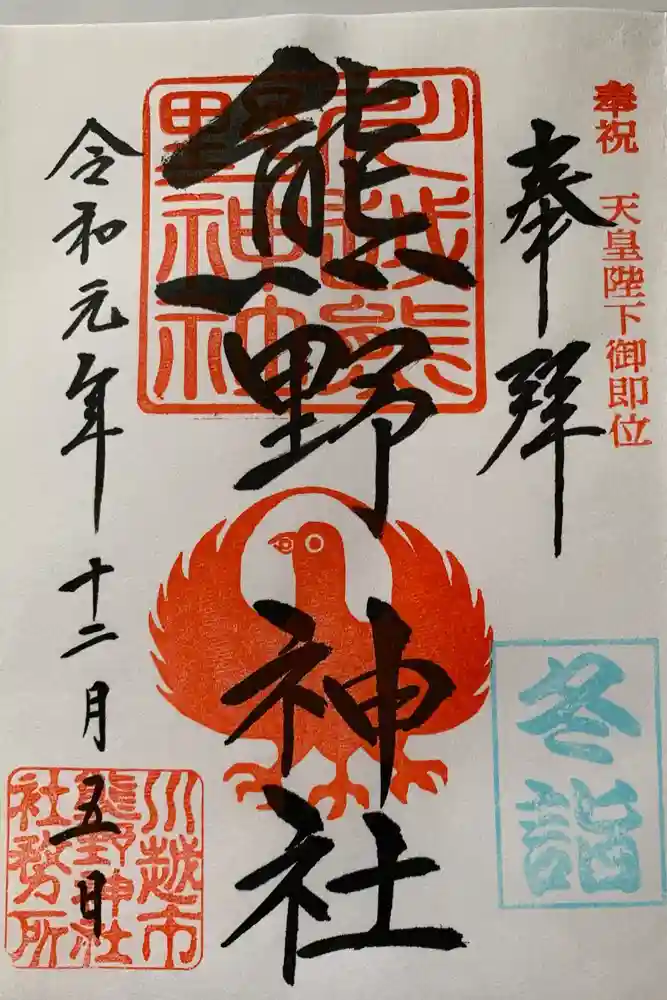 奉祝 天皇陛下御即位
奉拝
冬詣
川越熊野神社
熊野神社
令和元年十二月五日
川越市
熊野神社
社務所